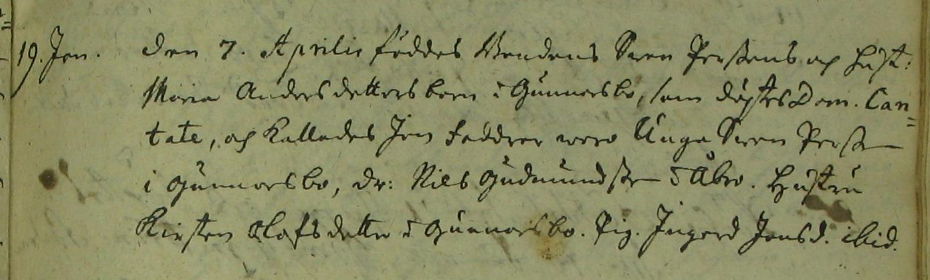 19. Jon. Den 7. Aprilis föddes Bondens Swen Perssons och hust:
Maria Andersdotters barn i Gunnarsbo, som döptes Dom. Can=
tate, och kallades Jon Faddrar woro Unga Swen Persson
i Gunnarsbo, Dr: Nils Gudmundsson i Åbro. Hustru
Kirsten Olofsdotter i Gunnarsbo. Pig. Ingerd Jonsd. ibid.